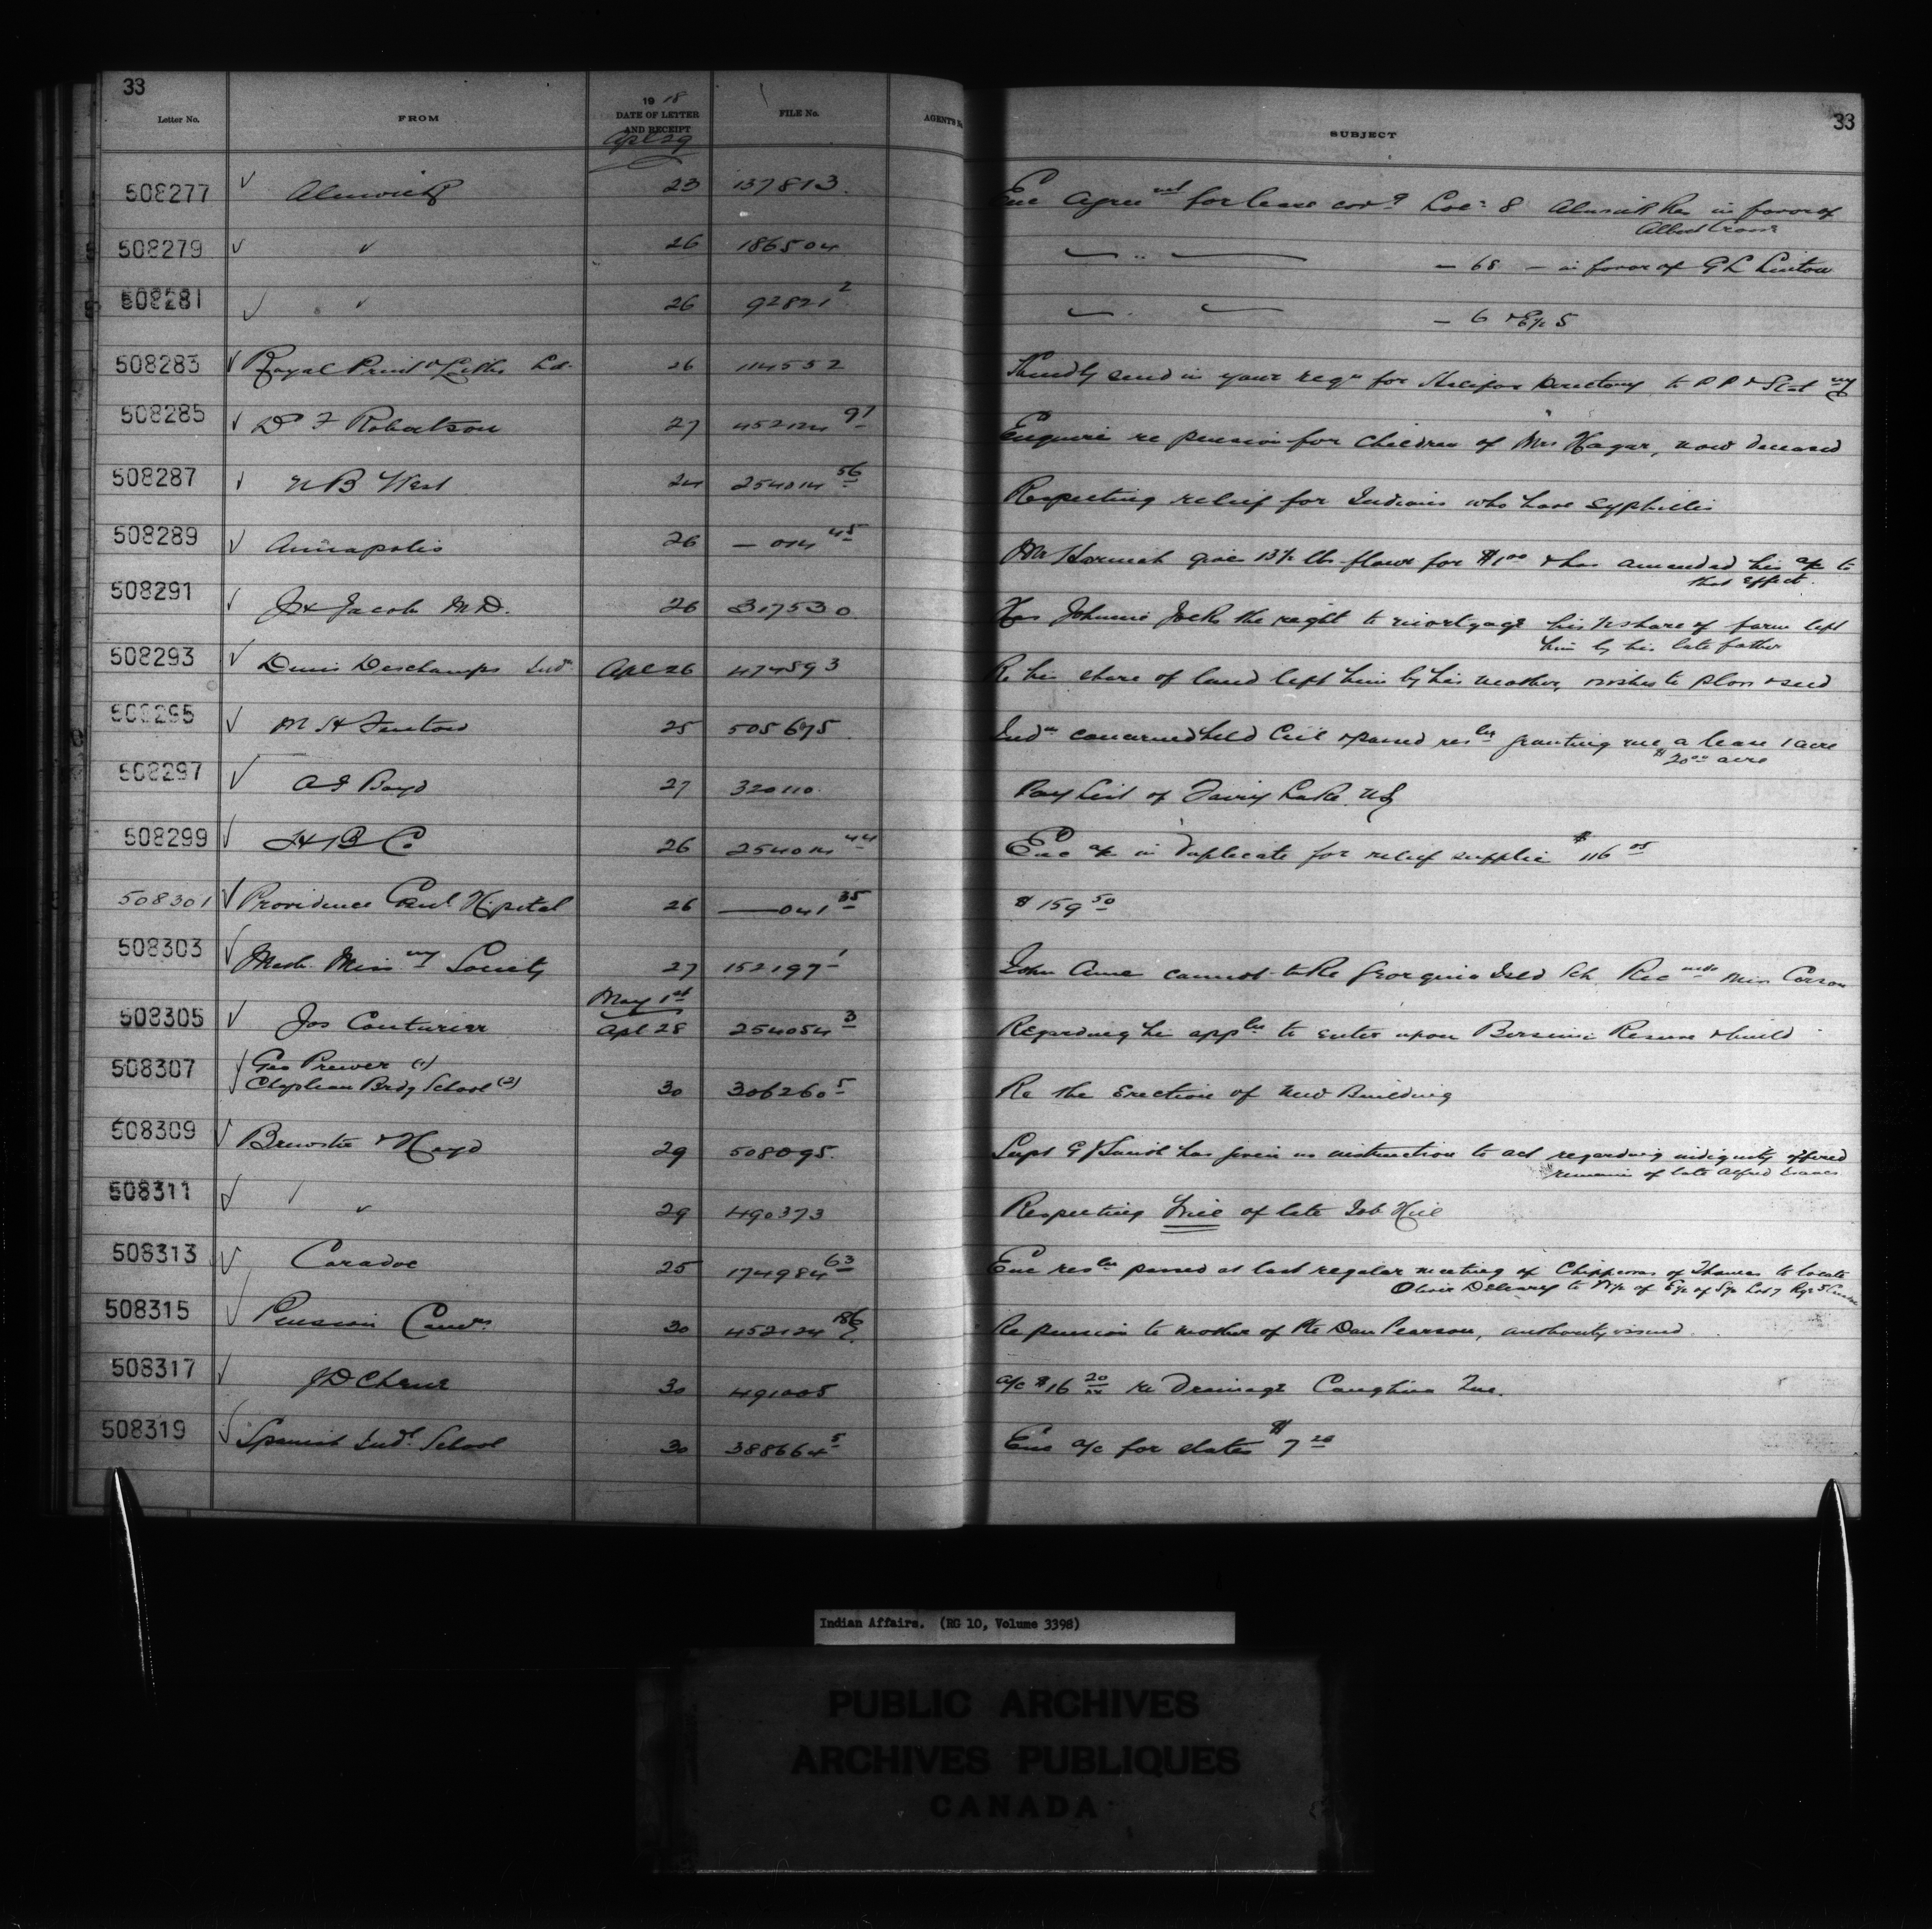 33
33
Letter No. FROM 19 18 DATE OF LETTER AND RECEIPT FILE No. AGENT'S No. SUBJECT
Apl 29
508277 ✓ Alnwick 23 137813. Enc Agree mnt for lease cov g Lot 8 Alnwick Res in favor of
Albert Crowe
508279 ✓ " 26 186504 " " " — 68 — in favor of G L Linton
508281 ✓ " 26 92821 2 " " — 6 & E½ 5
508283 ✓ Royal Print & Litho Ld. 26 114552 Kindly send in your reqn for Halifax Directory to P P & Stat ny
508285 ✓ D F Robertson 27 452124 91 Enquire re pension for Children of Mrs Hagar, now deceased
508287 ✓ N B West 24 254014 56 Respecting relief for Indians who have Syphillis
508289 ✓ Annapolis 26 — 014 45 Mr gives 13½ lbs flour for $1 00 & has amended his a/c to
that effect.
508291 ✓ Jacobs M.D. 26 317530 Has Johnnie Jocks the right to mortgage his share of farm left
him by his late father
508293 ✓ Denis Deschamps Ind n Apl 26 474593 Re his share of land left him by his mother, wishes to plow & seed
508295 ✓ M H Fentow 25 505675 Ind ns concerned held Ccil & passed res ln granting me a lease 1 acre
$20 00 acre
508297 ✓ A J Boyd 27 320110. Pay List of Fairy Lake N.S
508299 ✓ H B Co 26 254014 44 Enc a/c in Duplicate for relief supplies $116 05
508301 ✓ Providence Genl Hospital 26 — 041 35 $159 50
508303 ✓ Meth. Miss ny Society 27 152197 1 John cannot take Georgina Isld Sch. Rec mds Miss Carson
May 1st
508305 ✓ Jos Couturier Apl 28 254054 3 Regarding his app ln to enter upon Bersimis Reserve & build
508307 ✓ Geo Prewer (1)
Chapleau Brdg School (2) 30 306260 5 Re the Erection of New Building
508309 ✓ Brewster & Heyd 29 508095. Supt G J Smith has given us instruction to act regarding indignity offered
remains of late Alfred Isaacs
508311 ✓ " " 29 490373 Respecting Will of late Job Hill
508313 ✓ Caradoc 25 174984 63 Enc res ln passed at last regular meeting of Chippewas of Thames to locate
Oliver Deleary to N½ of E½ of S½ Lot 7 Rge 5
508315 ✓ Pension Comrs 30 452124 186 Re pension to mother of Pte Dan Pearson, authority issued.
508317 ✓ J D 30 491005 a/c $16 20/xx re Drainage Caughna
508319 ✓ Spanish Indl School 30 388664 5 Enc a/c for slates $7 20
Indian Affairs. (RG 10, Volume 3398)
PUBLIC ARCHIVES
ARCHIVES PUBLIQUES
CANADA